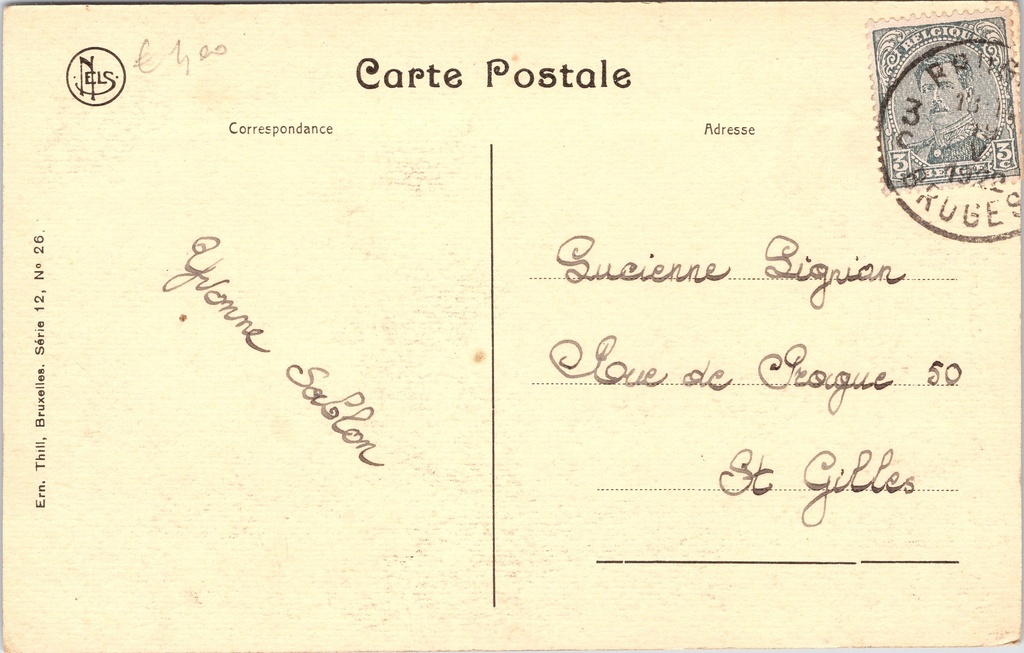 NELS
€ 4,00
Carte Postale
Correspondance
Adresse
BELGIQUE
3 3
3
1922
BRUGES
Yvonne Sablon
Lucienne Lignian
Rue de Prague 50
St Gilles
Ern. Thill, Bruxelles. Série 12, No 26.